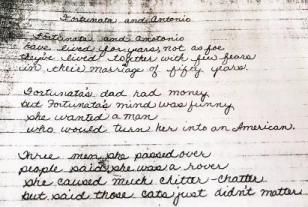 Fortunata and Antonio
Fortunata and Antonio
have lived for years, not as foe
they've lived together with few fears
in their marriage of fifty years.
Fortunata's dad had money
but Fortunata's mind was funny
she wanted a man
who would turn her into an American.
Three men she passed over
people said she was a rover
she caused much chitter-chatter
but said those cats just didn't matter